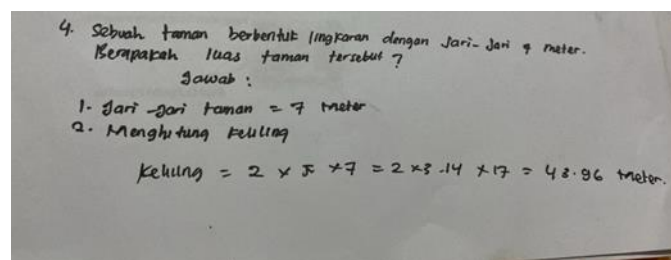 4. Sebuah taman berbentuk lingkaran dengan Jari-Jari 9 meter.
Berapakah luas taman tersebut ?
Jawab :
1. Jari-Jari taman = 7 meter
2. Menghitung keliling
Keliling = 2 x π x 7 = 2 x 3.14 x 17 = 43.96 meter.